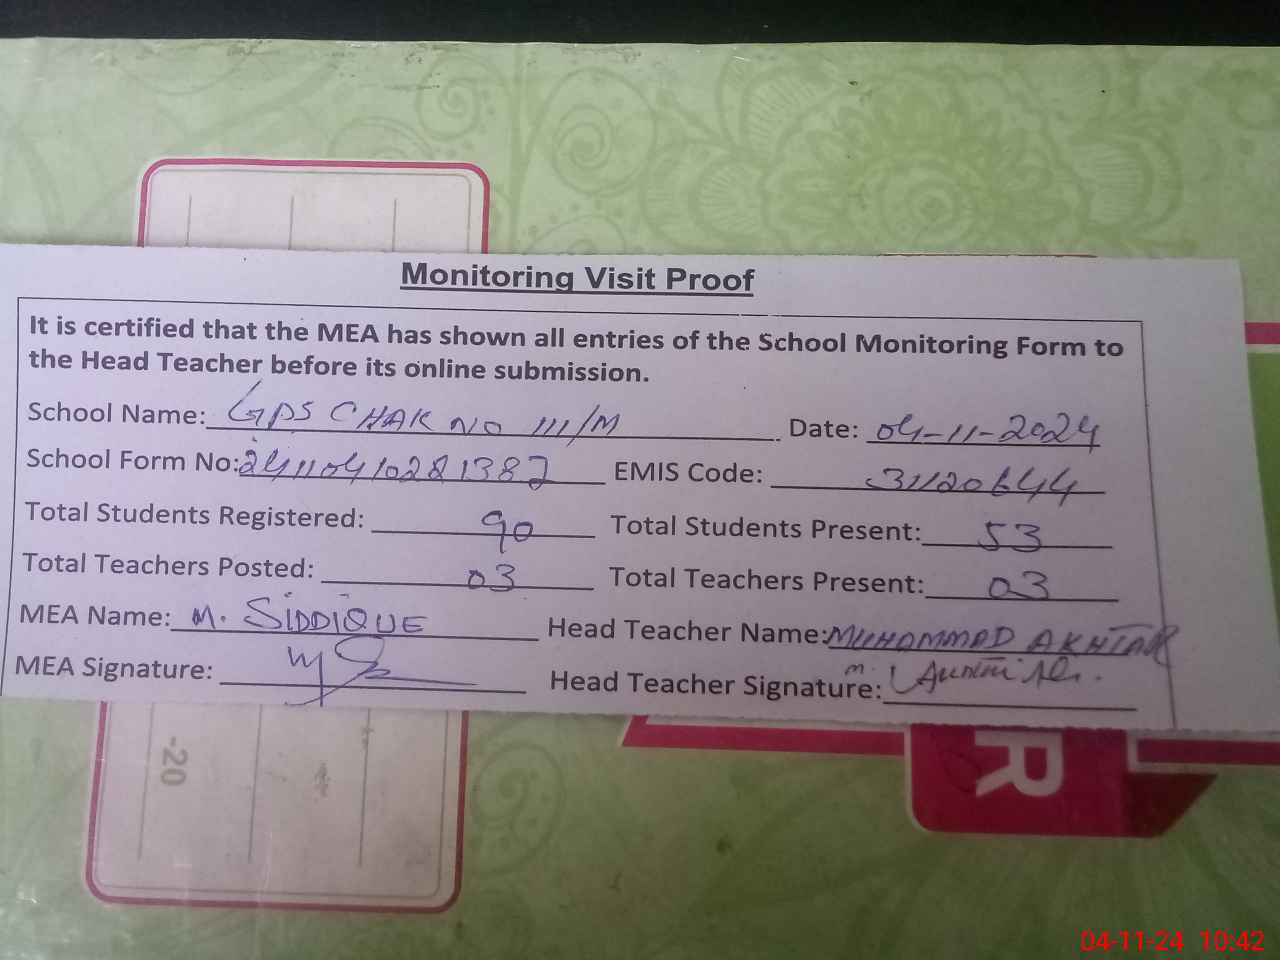 Monitoring Visit Proof
It is certified that the MEA has shown all entries of the School Monitoring Form to
the Head Teacher before its online submission.
School Name: GPS CHAK NO 111/M Date: 04-11-2024
School Form No: 24110410281387 EMIS Code: 31120644
Total Students Registered: 90 Total Students Present: 53
Total Teachers Posted: 03 Total Teachers Present: 03
MEA Name: M. SIDDIQUE Head Teacher Name: MUHAMMAD AKHTAR
MEA Signature: Head Teacher Signature:
-20
R
04-11-24 10:42